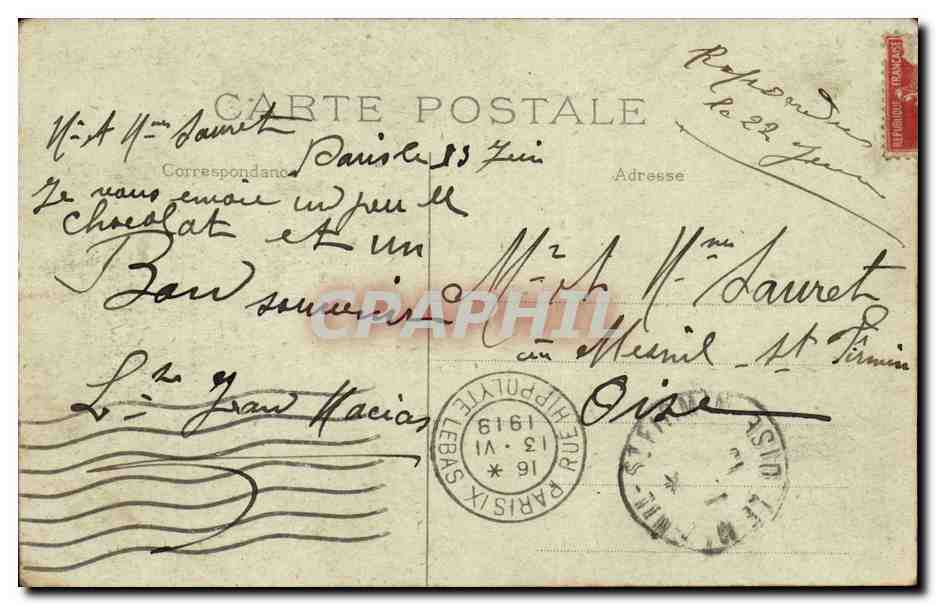 CARTE POSTALE
Correspondance
Mr et Mme Sauret
Paris le 13 Juin
Je vous envoie un peu de
chocolat et un
Bon
souvenir
Jean Macias
Adresse
Repondu
le 22 Juin
REPUBLIQUE FRANÇAISE
Mr et Mme Sauret
au Mesnil St Firmin
Oise
CPAPHIL
PARIS IX RUE HIPPOLYTE LEBAS
16 *
13 · VI
1919
OISE